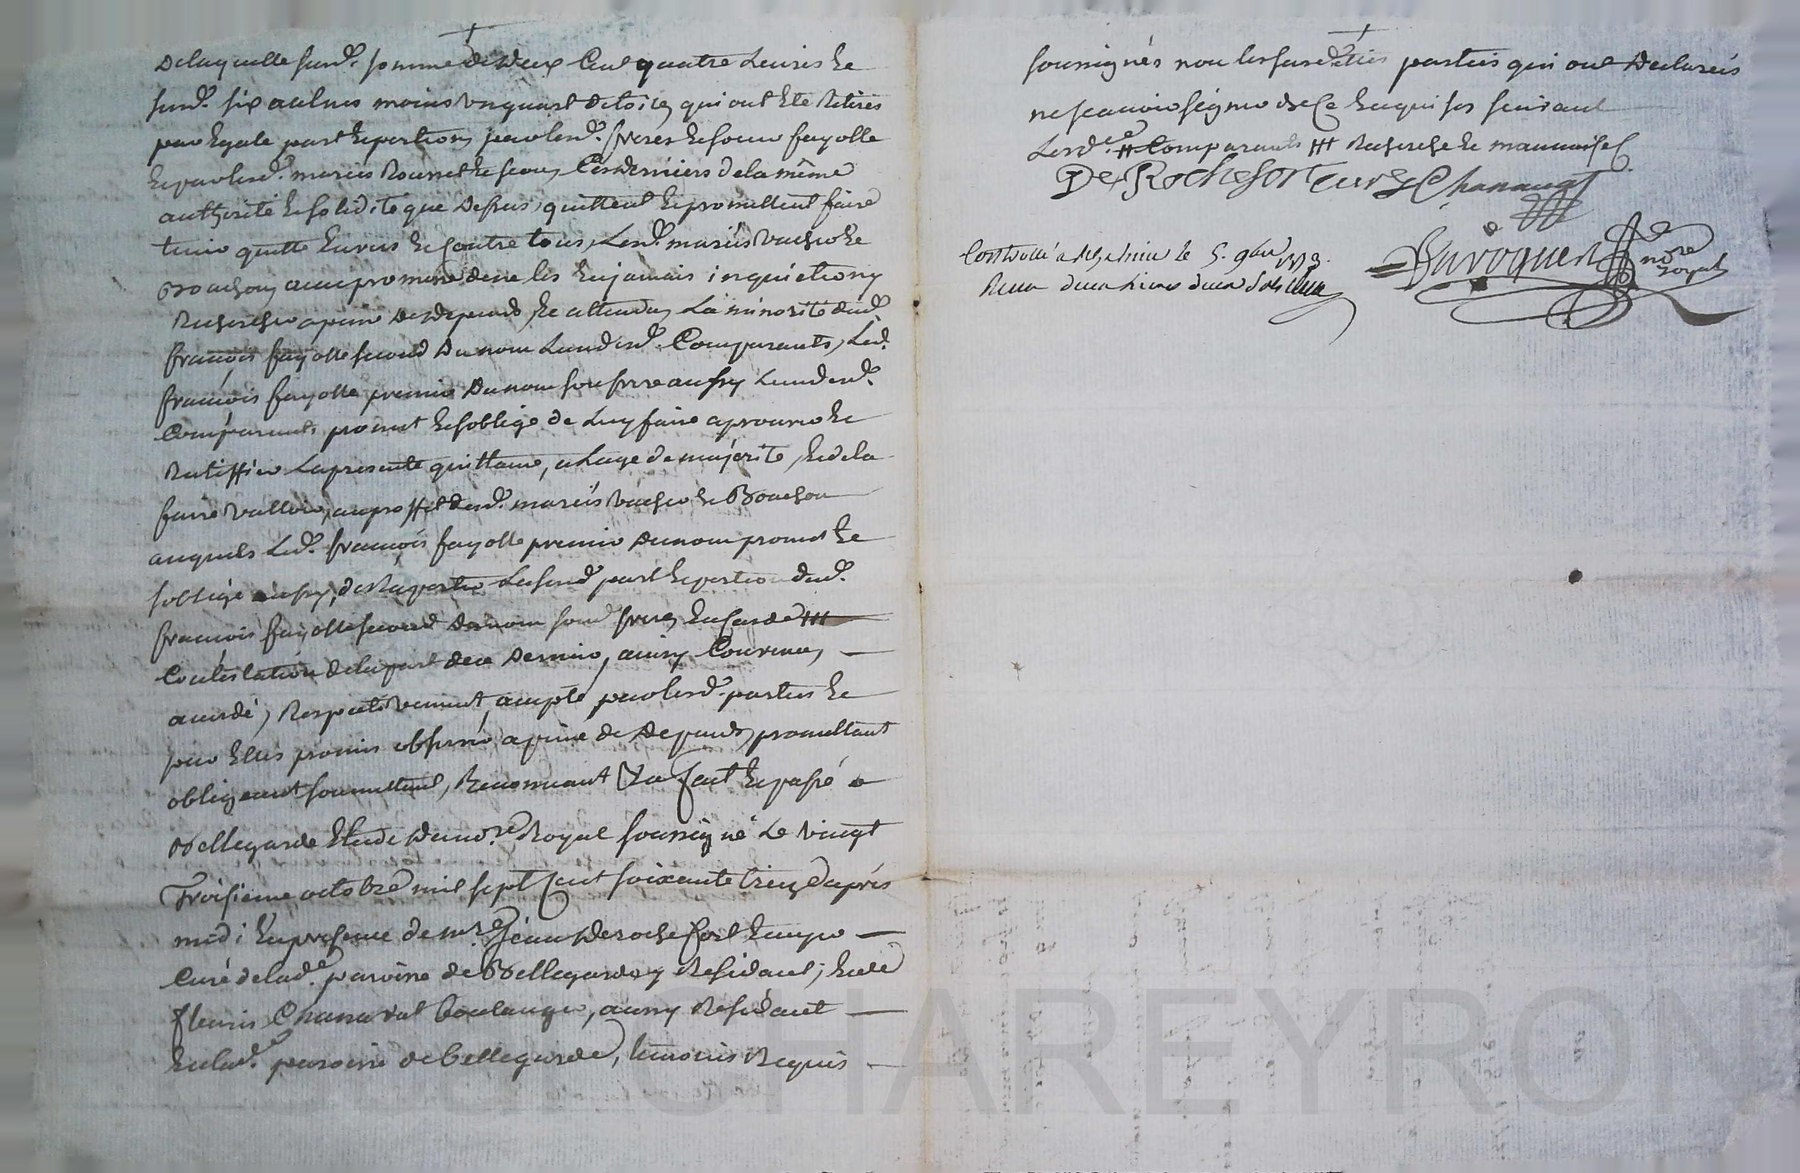 Delaquelle susd. somme de deux Cent quatre Livres he
susd. six aulnes moins un quart de toiles qui ont hete Retirés
par hegale part heportions par lesd. freres hesoeur fayolle
heparlesd. mariés Rournat he Ces derniers dela même
authorité hesolidité que dessus, quittent hepromettent faire
tenir quitte Envers he Contre tous, Lesd. mariés vacher he
Bouchon avec promesse dene les hen jamais inquieter ny
Rechercher apeine des depends, he attendu La minorité dud.
francois fayolle second du nom Lun desd. Comparants, Led.
francois fayolle premier du nom son frere aussy Lun desd.
Comparants, promet hesoblige de Luy faire aprouver he
Ratiffier La presente quittance, a Lage de majorité, he de la
faire valloir, au proffit desd. mariés vacher he Bouchon
auquels Led. francois fayolle premier du nom promet he
soblige aussy, de Raporter La susd. part heportion dud.
francois fayolle second du nom sond. frere, En cas de
Contestation de la part de ce dernier, ainsy Convenu,
accordé, Respectivement accepté par lesd. parties he
par Elles promis observer, a peine de depends, promettant
obligeant soumettant, Renonceant &a fait he passé a
Bellegarde Etude du nore Royal soussigné Le vingt
Troisieme octobre mil sept Cent soixante treize après
midi En presence de mre Jean De rochefort
Curé de lad. paroisse de Bellegarde y Residant, he de
fleuris Chanavat boulanger, aussy Residant
En lad. paroisse de bellegarde, temoins Requis
soussignés non les susd. parties qui ont declarés
ne scavoir signer de Ce Enquises suivant
Lesd. Comparants Recherche he mauvaise
De Rochefort Curé Chanavat
Duroquet nore Royal
Controllé a le 5. 9bre 1773.
Reçu
CHAREYRON